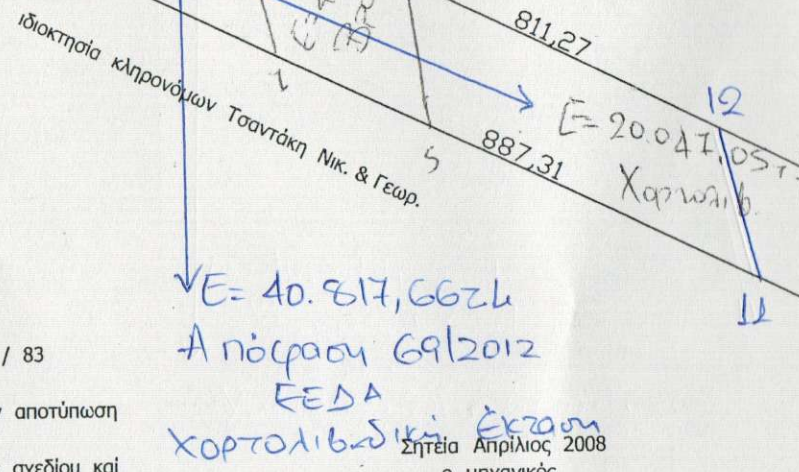 811,27
12
ιδιοκτησία κληρονόμων Τσαντάκη Νικ. & Γεωρ.
5
887,31
Ε= 20.047,05
Χορτολιβ.
11
Ε= 40.817,66
Απόφαση 69/2012
ΕΕΔΑ
χορτολιβαδική Έκταση
/ 83
αποτύπωση
Σητεία Απρίλιος 2008
σχεδίου καί
ο μηχανικός